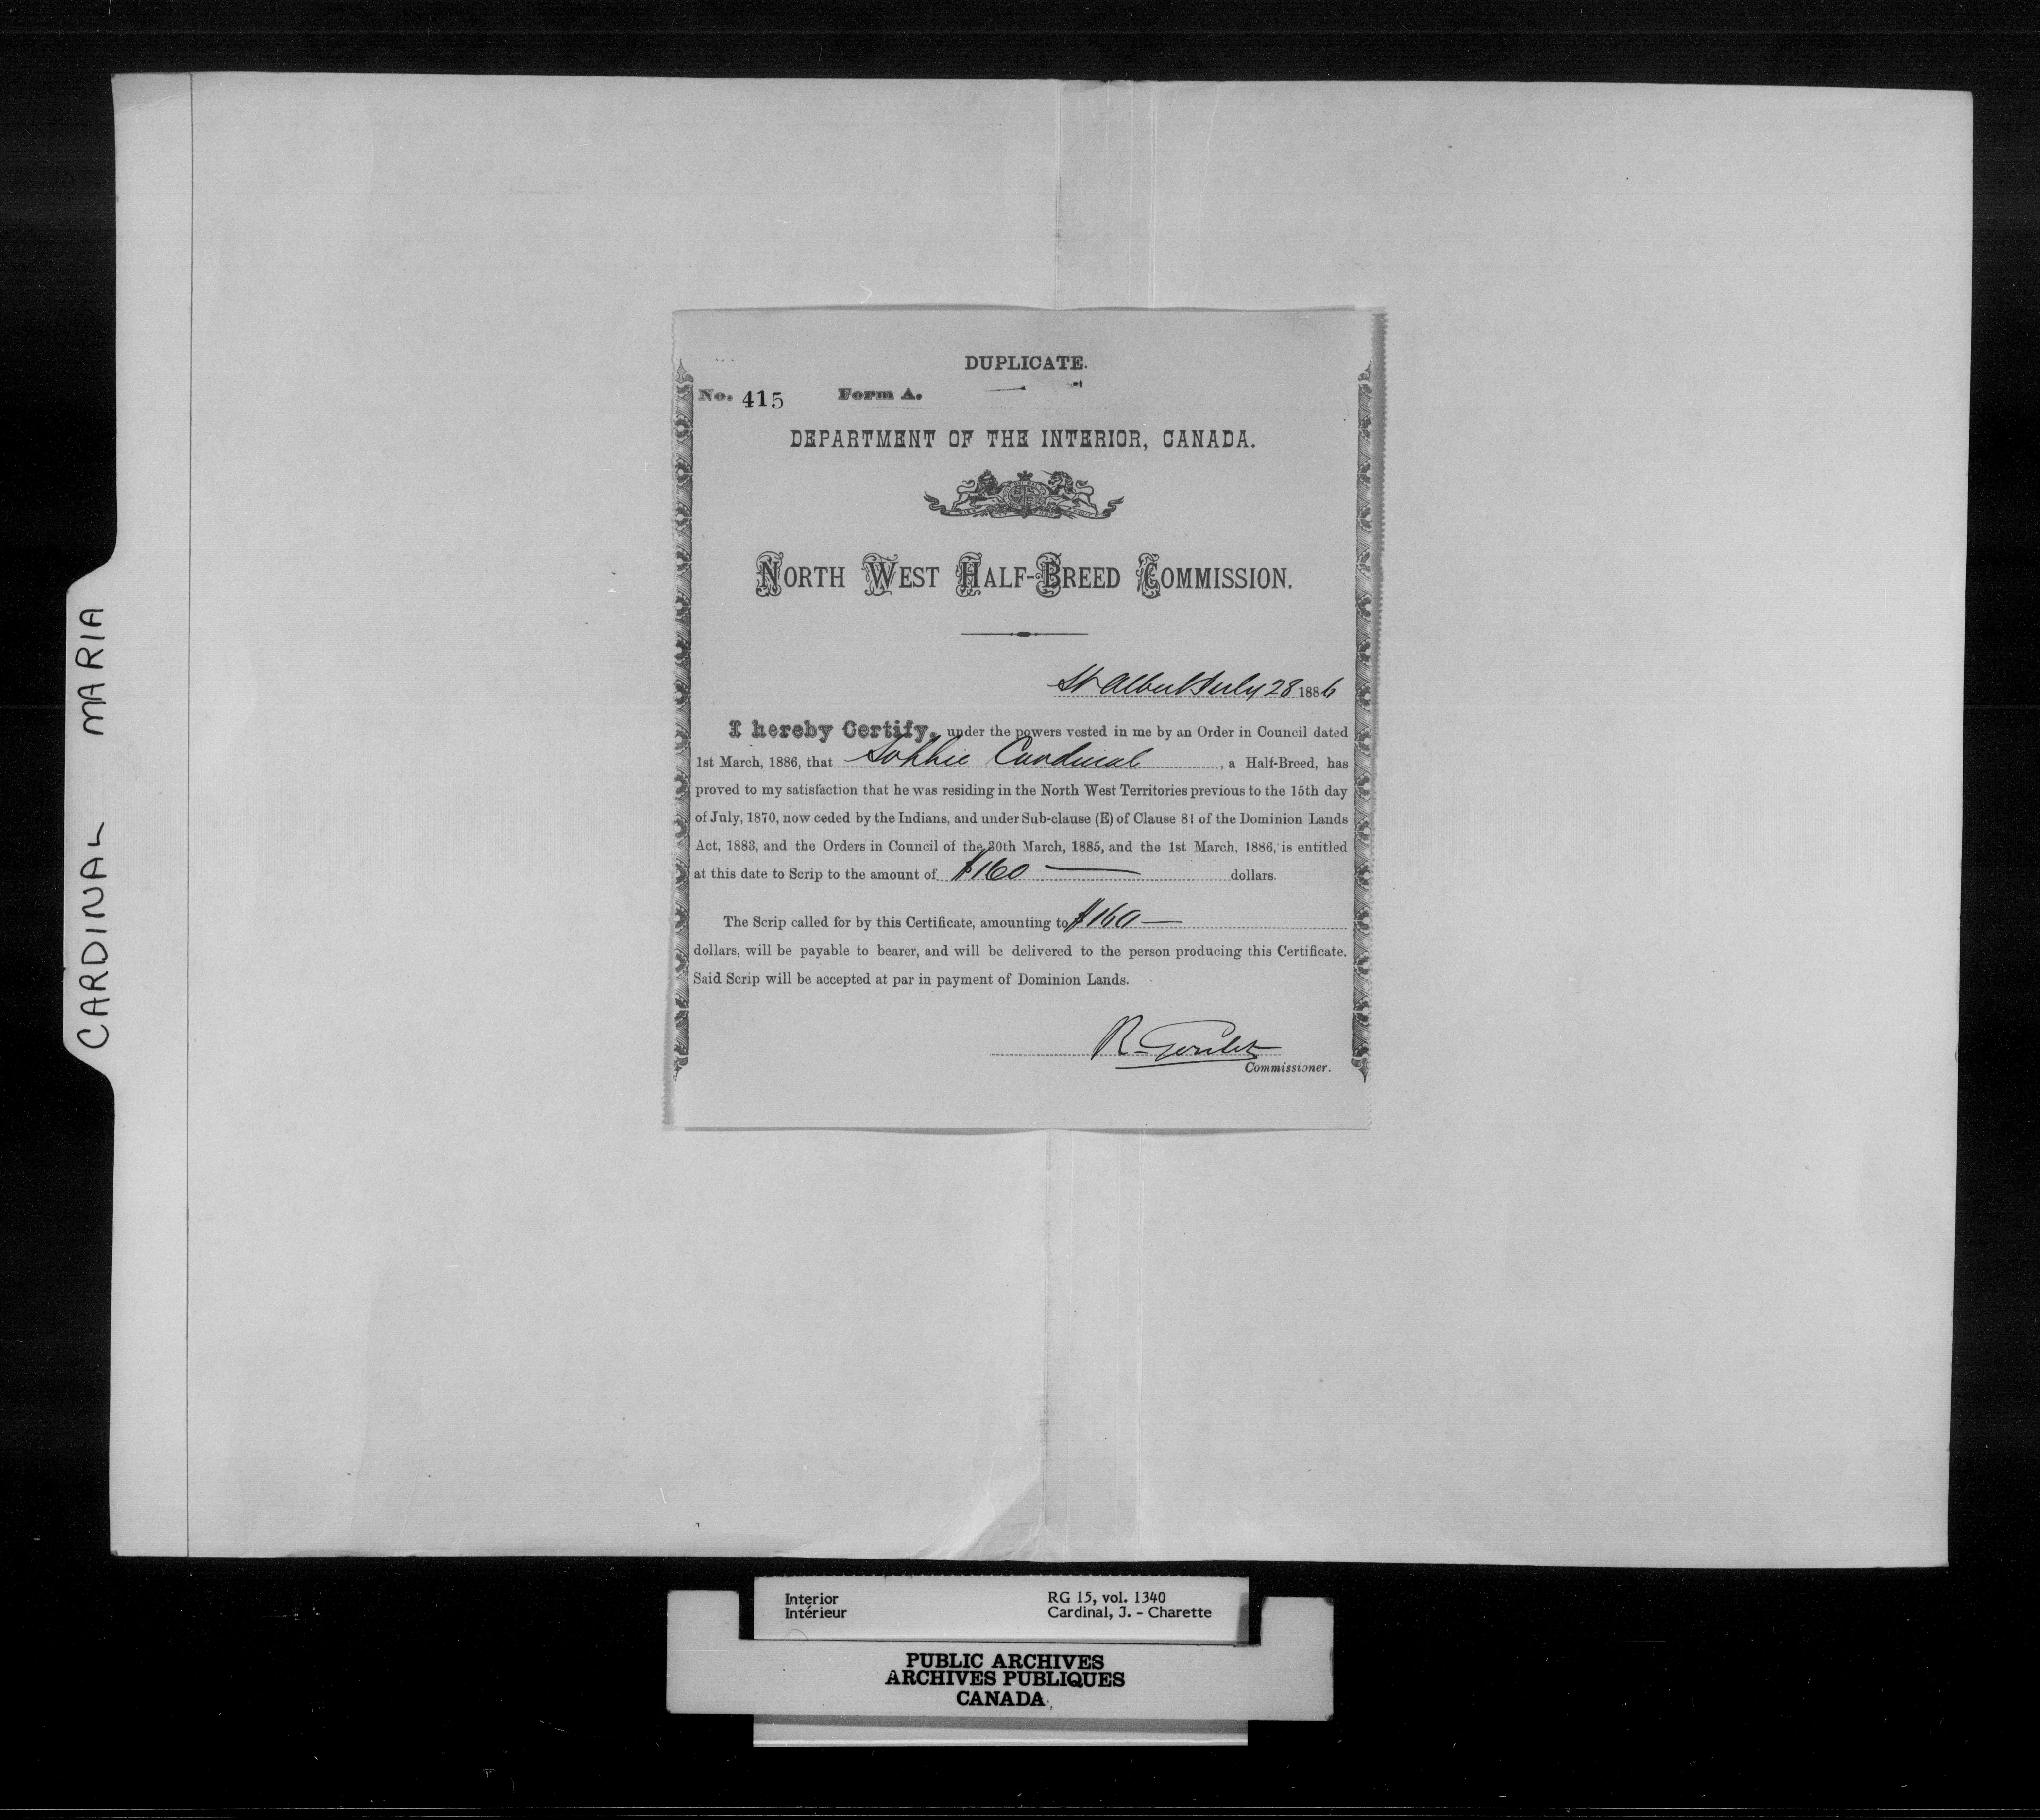 DUPLICATE.
No. 415 Form A.
DEPARTMENT OF THE INTERIOR, CANADA.
NORTH WEST HALF-BREED COMMISSION.
St Albert July 28 1886
I hereby Certify, under the powers vested in me by an Order in Council dated
1st March, 1886, that Sophie Cardinal, a Half-Breed, has
proved to my satisfaction that he was residing in the North West Territories previous to the 15th day
of July, 1870, now ceded by the Indians, and under Sub-clause (E) of Clause 81 of the Dominion Lands
Act, 1883, and the Orders in Council of the 30th March, 1885, and the 1st March, 1886, is entitled
at this date to Scrip to the amount of $160 — dollars.
The Scrip called for by this Certificate, amounting to $160 —
dollars, will be payable to bearer, and will be delivered to the person producing this Certificate.
Said Scrip will be accepted at par in payment of Dominion Lands.
R. Goulet
Commissioner.
CARDINAL MARIA
Interior RG 15, vol. 1340
Intérieur Cardinal, J. - Charette
PUBLIC ARCHIVES
ARCHIVES PUBLIQUES
CANADA